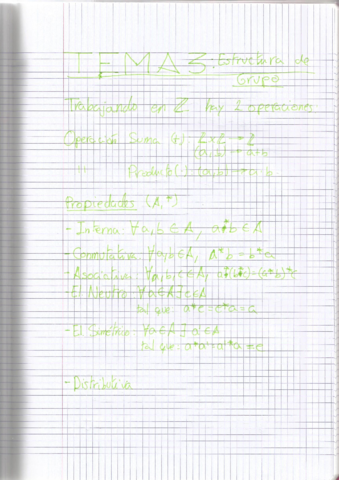 TEMA 3: Estructura de
Grupo
Trabajando en Z hay 2 operaciones
Operación Suma (+): Z x Z → Z
(a,b) → a+b
" Producto (·): (a,b) → a·b
Propiedades (A,*)
- Interna: ∀a,b ∈ A, a*b ∈ A
- Conmutativa: ∀a,b ∈ A, A*b = b*a
- Asociativa: ∀a,b,c ∈ A, a*(b*c)=(a*b)*c
- El Neutro: ∀a∈A ∃e∈A
tal que a*e=e*a=a
- El Simétrico: ∀a∈A ∃ a'∈A
tal que a*a'=a'*a=e
- Distributiva